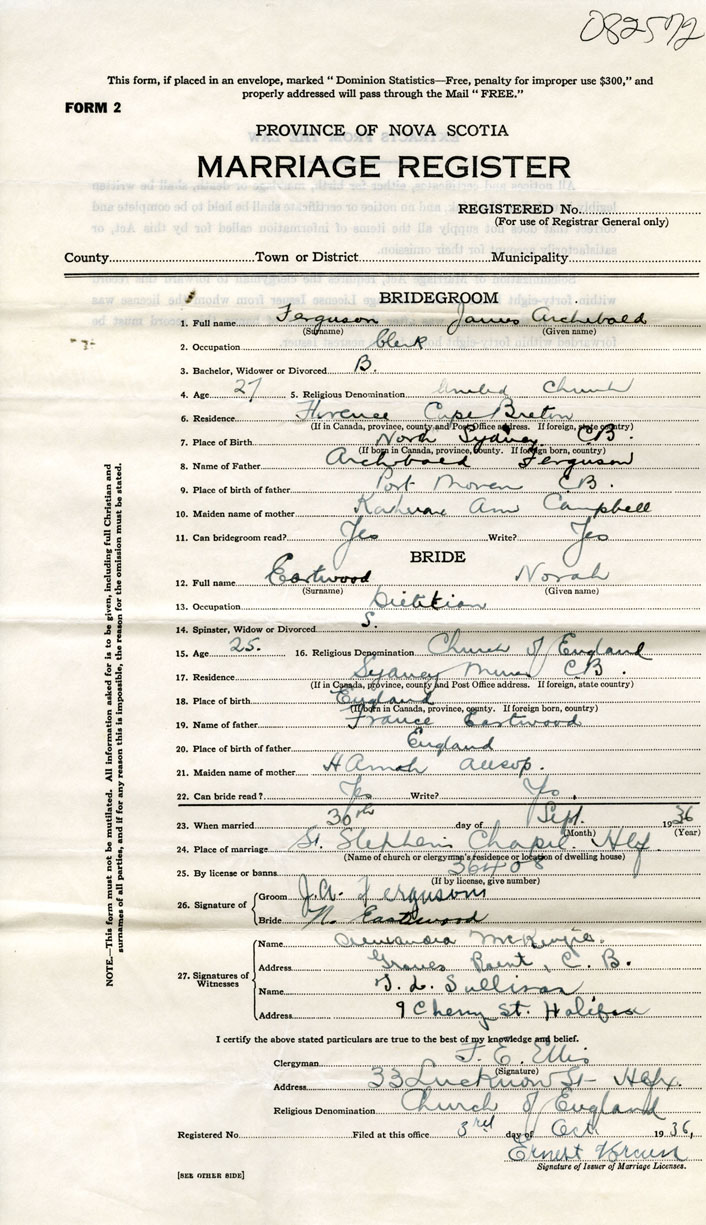 082572
This form, if placed in an envelope, marked “ Dominion Statistics—Free, penalty for improper use $300,” and
properly addressed will pass through the Mail “ FREE.”
FORM 2
PROVINCE OF NOVA SCOTIA
MARRIAGE REGISTER
REGISTERED No.
(For use of Registrar General only)
County Town or District Municipality
BRIDEGROOM
1. Full name Ferguson James Archibald
(Surname) (Given name)
2. Occupation Clerk
3. Bachelor, Widower or Divorced B.
4. Age 27 5. Religious Denomination United Church
6. Residence Florence Cape Breton
(If in Canada, province, county and Post Office address. If foreign, state country)
7. Place of Birth North Sydney C.B.
(If born in Canada, province, county. If foreign born, country)
8. Name of Father Archibald Ferguson
9. Place of birth of father Port Morien C.B.
10. Maiden name of mother Ann Campbell
11. Can bridegroom read? Yes Write? Yes
BRIDE
12. Full name Eastwood Norah
(Surname) (Given name)
13. Occupation Dietitian
14. Spinster, Widow or Divorced S.
15. Age 25. 16. Religious Denomination Church of England
17. Residence Sydney Mines C.B.
(If in Canada, province, county and Post Office address. If foreign, state country)
18. Place of birth England
(If born in Canada, province, county. If foreign born, country)
19. Name of father Eastwood
20. Place of birth of father England
21. Maiden name of mother Hannah
22. Can bride read? Yes Write? Yes.
23. When married 30th day of Sept. 1936
(Month) (Year)
24. Place of marriage St. Stephens Chapel Hfx
(Name of church or clergyman's residence or location of dwelling house)
25. By license or banns 36408
(If by license, give number)
26. Signature of Groom J.A. Ferguson
Bride N. Eastwood
27. Signatures of Witnesses
Name McKenzie.
Address Groves Point, C.B.
Name Sullivan
Address 9 Cherry St. Halifax
I certify the above stated particulars are true to the best of my knowledge and belief.
Clergyman F. E. Ellis
(Signature)
Address 33 Lucknow St- Hfx.
Religious Denomination Church of England
Registered No. Filed at this office 3rd day of Oct 1936,
Ernest
Signature of Issuer of Marriage Licenses.
[SEE OTHER SIDE]
NOTE.—This form must not be mutilated. All information asked for is to be given, including full Christian and
surnames of all parties, and if for any reason this is impossible, the reason for the omission must be stated.